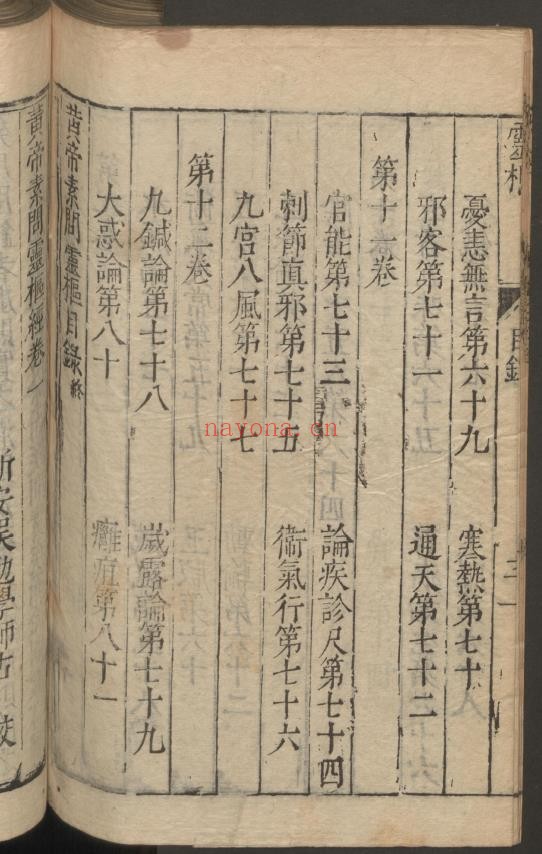 靈樞 目錄 三
憂恚無言第六十九 寒熱第七十
邪客第七十一 通天第七十二
第十一卷
官能第七十三 論疾診尺第七十四
刺節真邪第七十五 衛氣行第七十六
九宮八風第七十七
第十二卷
九鍼論第七十八 歲露論第七十九
大惑論第八十 癰疽第八十一
黃帝素問靈樞目錄終
黃帝素問靈樞經卷一
新安吳勉學師古 校
nayona.cn